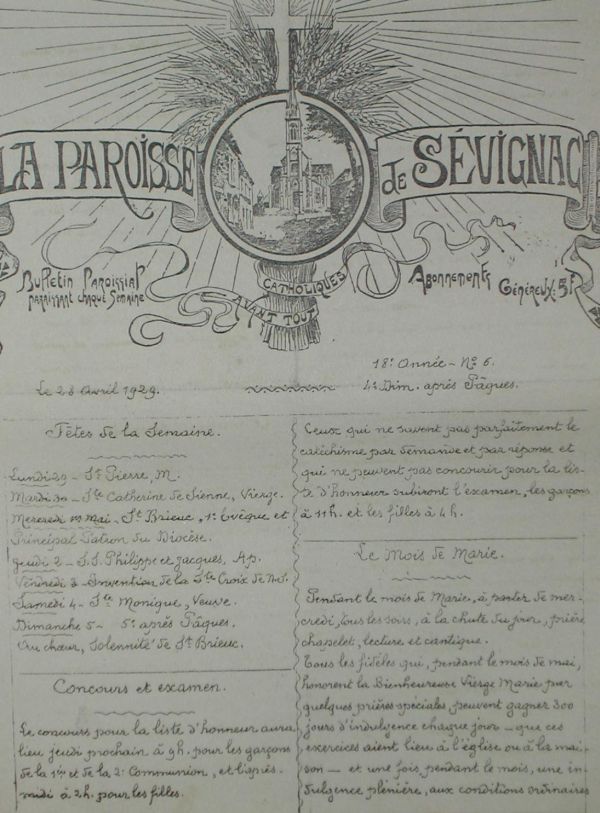 LA PAROISSE de SÉVIGNAC
Bulletin Paroissial
paraissant chaque semaine
CATHOLIQUES
AVANT TOUT
Abonnements
Généreux: 5f
Le 28 Avril 1929.
18e Année - No 6.
4e Dim. après Pâques.
Fêtes de la Semaine.
Lundi 29 - St Pierre, M.
Mardi 30 - Ste Catherine de Sienne, Vierge.
Mercredi 1er Mai - St Brieuc, 1er Evêque et
Principal Patron du Diocèse.
Jeudi 2 - S.S. Philippe et Jacques, Ap.
Vendredi 3 - Invention de la Ste Croix de N.S.
Samedi 4 - Ste Monique, Veuve.
Dimanche 5 - 5e après Pâques.
Au chœur, Solennité de St Brieuc.
Concours et examen.
Le concours pour la liste d'honneur aura
lieu jeudi prochain à 9h. pour les garçons
de la 1ère et de la 2e Communion, et l'après-
midi à 2h. pour les filles.
Ceux qui ne savent pas parfaitement le
catéchisme par demande et par réponse et
qui ne peuvent pas concourir pour la lis-
te d'honneur subiront l'examen, les garçons
à 11h. et les filles à 4h.
Le Mois de Marie.
Pendant le mois de Marie, à partir de mer-
credi, tous les soirs, à la chute du jour, prière
chapelet, lecture et cantique.
Tous les fidèles qui, pendant le mois de mai,
honorent la Bienheureuse Vierge Marie par
quelques prières spéciales, peuvent gagner 300
jours d'indulgence chaque jour - que ces
exercices aient lieu à l'église ou à la mai-
son - et une fois, pendant le mois, une in-
dulgence plénière, aux conditions ordinaires